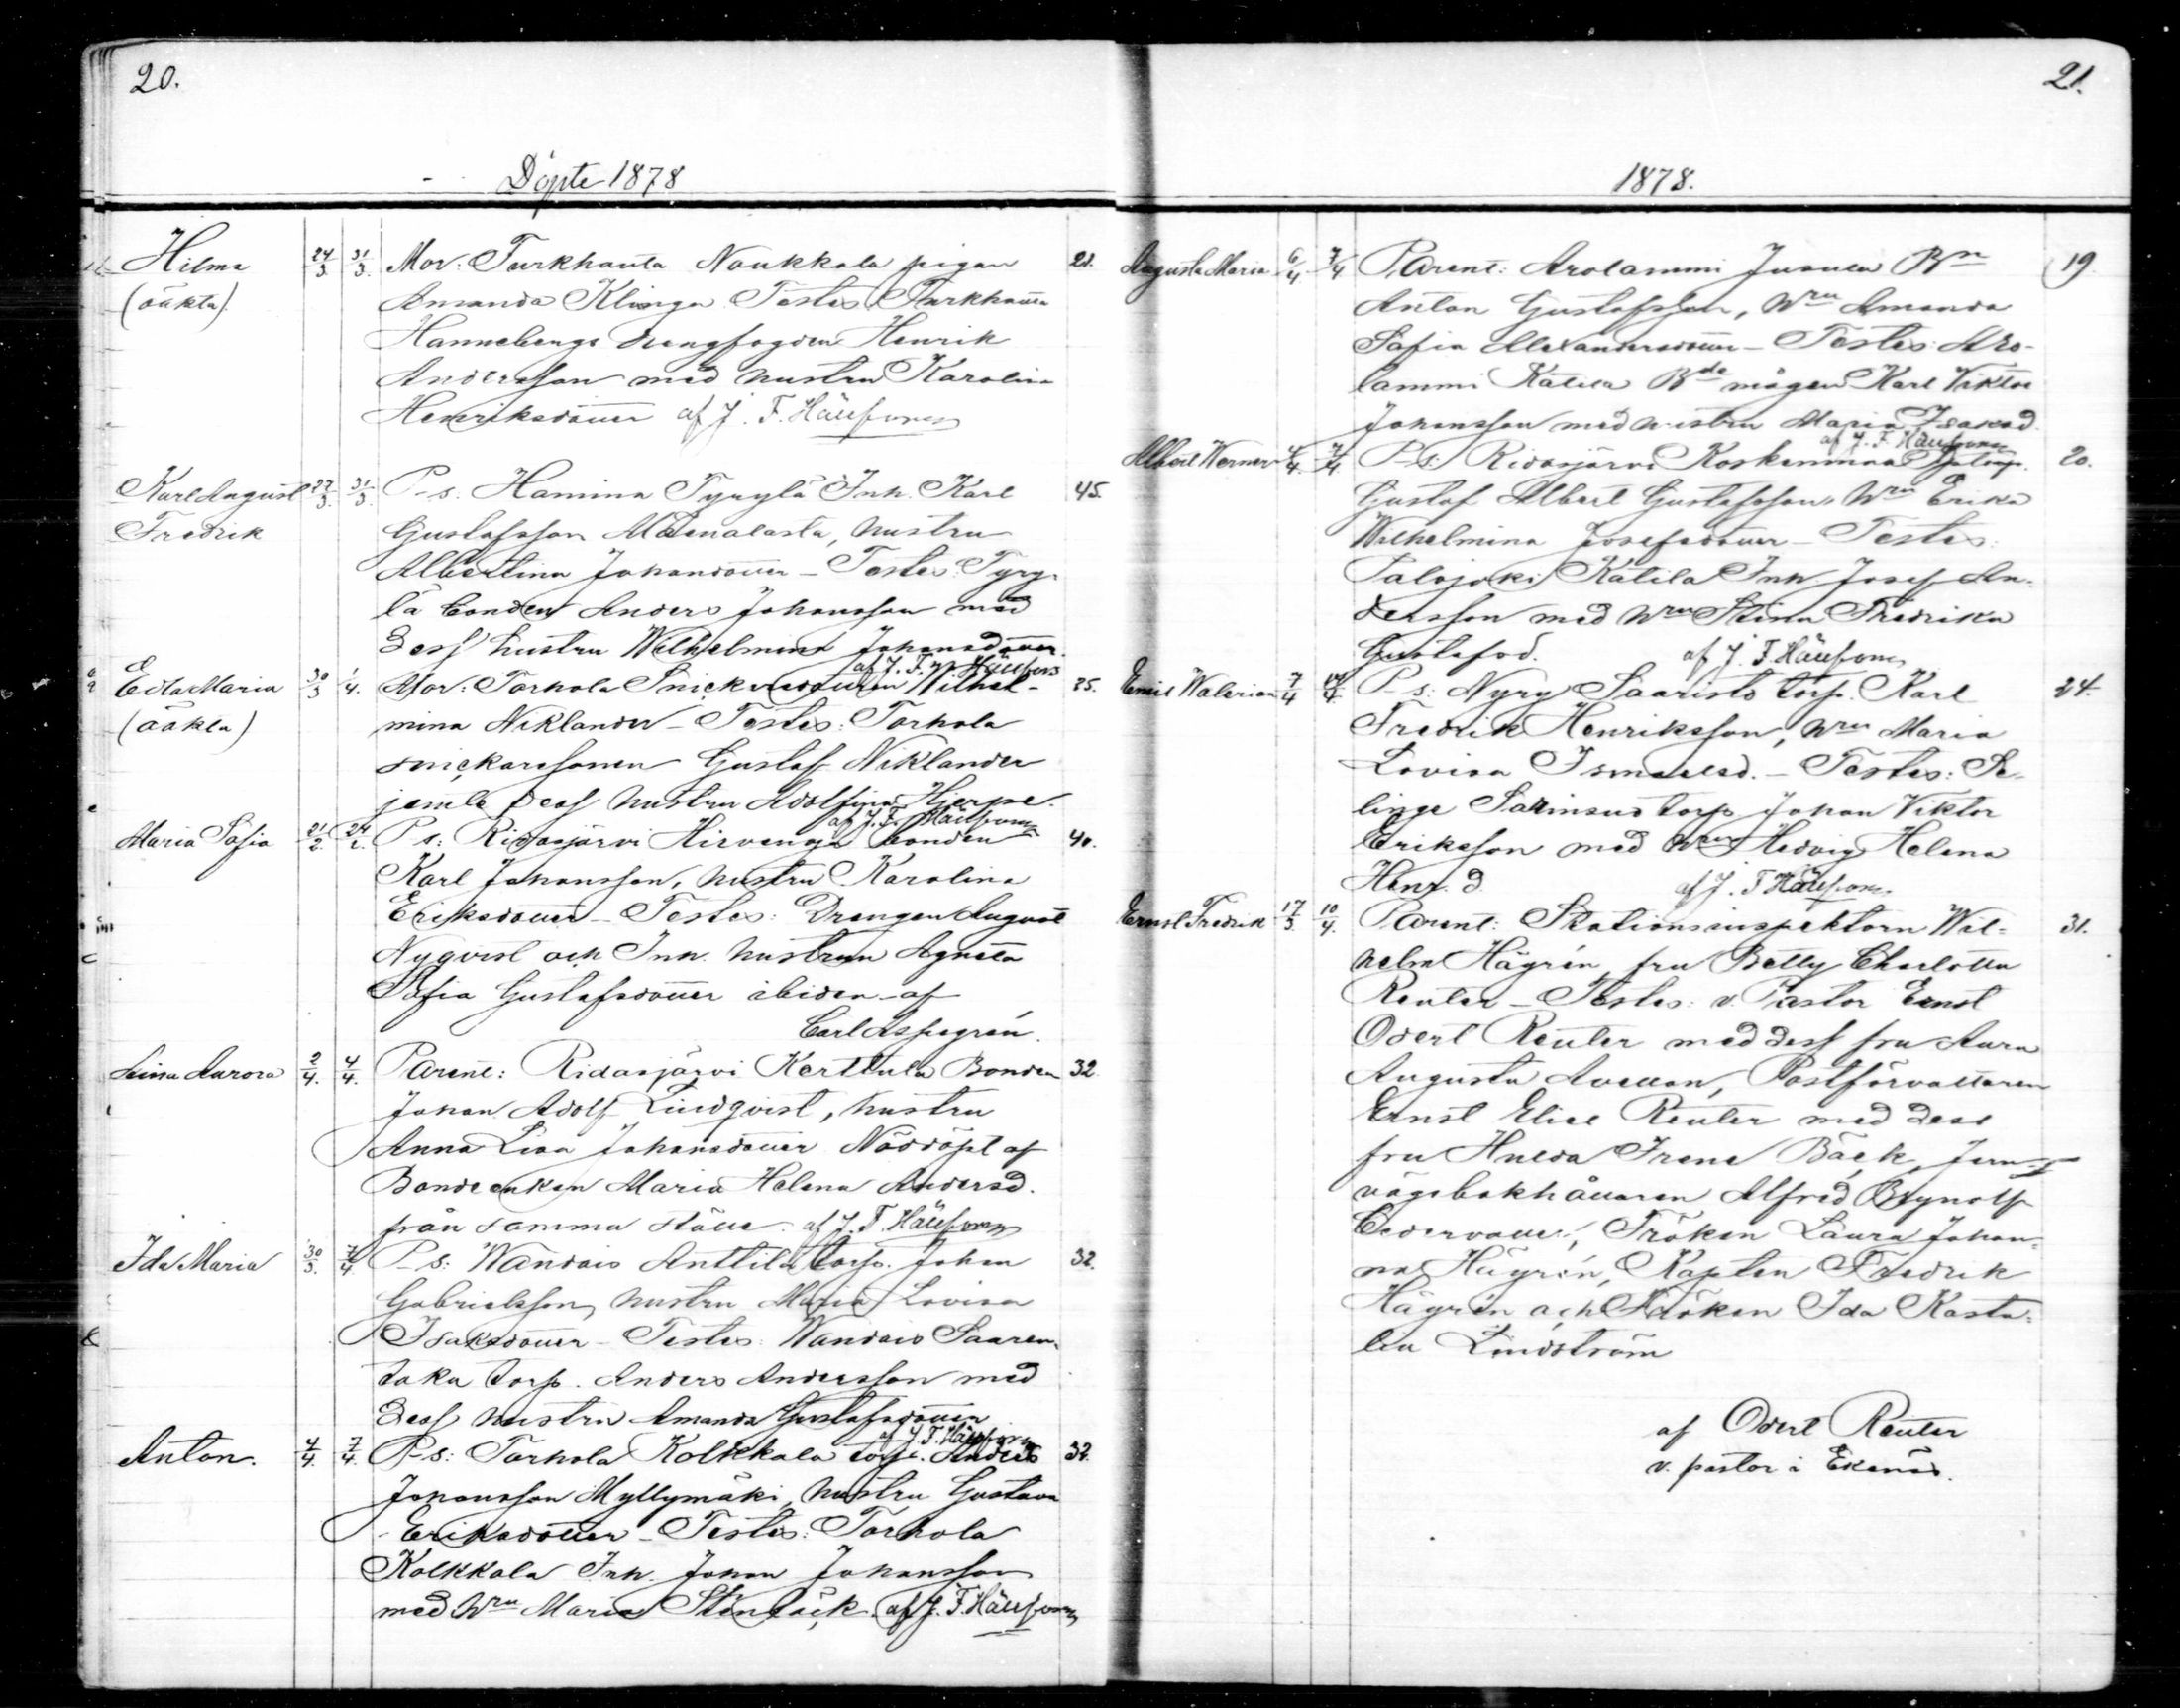 20.
Döpte 1878
Hilma 24/3 31/3 Mor: Turkhauta Naukkala pigan 21.
(oäkta). Amanda Klinga Testes Turkhauta
Hanneberga drengfogden Henrik
Andersson med hustru Karolina
Henriksdotter af J. F. Hällfors
Karl August 27/3 31/3 P-s: Hamina Tyrylä Inh. Karl 45.
Fredrik Gustafsson hustru
Albertina Johansdotter – Testes: Tyry-
lä bonden Anders Johansson med
dess hustru Wilhelmina Johansdotter.
af J. F. Hällfors
Edla Maria 30/3 1/4. Mor: Torhola Snickaredottren Wilhel- 25.
(oäkta) mina Niklander – Testes: Torhola
snickaresonen Gustaf Niklander
jemte dess hustru Adolfina Hjerpe.
af J. F. Hällfors
Maria Sofia 21/2 24/2. P-s: Ridasjärvi Hirvenoja bonden 40.
Karl Johansson, hustru Karolina
Eriksdotter – Testes: Drengen August
Nyqvist och Inh. hustrun Agneta
Sofia Gustafsdotter ibidem – af
Carl Aspegrén.
Aurora 2/4. 4/4. Parent: Ridasjärvi Kerttula Bonden 32.
Johan Adolf Lindqvist, hustru
Anna Lisa Johansdotter Nöddöpt af
Bondeenkan Maria Helena Andersd.
från samma ställe. af J. F. Hällfors
Ida Maria 30/3. 7/4. P-s: Wandais Anttila torp. Johan 32.
Gabrielsson, hustru Maria Lovisa
Isaksdotter – Testes: Wandais Saaren-
taka torp. Anders Andersson med
dess hustru Amanda Gustafsdotter
af J. F. Hällfors
Anton. 4/4. 7/4. P-s: Torhola Kolkkala torp. Anders 32.
Johansson Myllymäki, hustru Gustava
Eriksdotter – Testes: Torhola
Kolkkala Inh. Johan Johansson
med hru Maria Stenbäck. af J. F. Hällfors
21.
1878.
Augusta Maria 6/4 7/4 Parent: Arolammi Jusula Bn 19
Anton Gustafsson, hru Amanda
Sofia Alexandersdotter – Testes: Aro-
lammi Kätilä Bde mågen Karl Viktor
Johansson med hustru Maria Isaksd.
af J. F. Hällfors
Albert Werner 4/4. 7/4 P-s: Ridasjärvi Koskenmaa 20.
Gustaf Albert Gustafsson, hru Erika
Wilhelmina Josefsdotter – Testes:
Palojoki Kätilä Inh. Josef An-
dersson med hru Stina Fredrika
Gustafsd. af J. F. Hällfors
Emil Walerian 7/4 14/4. P-s: Nyry Saaristo torp. Karl 24.
Fredrik Henriksson, hru Maria
Lovisa Ismaelsd. – Testes: Se-
linge torp. Johan Viktor
Eriksson med hru Hedvig Helena
Henr. d. af J. F. Hällfors.
Ernst Fredrik 17/3 10/4. Parent: Stationsinspektorn Wil- 31.
helm Hägrén, fru Betty Charlotta
Reuter – Testes: v. Pastor Ernst
Odert Reuter med dess fru Aura
Augusta Avellan, Postförvaltaren
Ernst Elise Reuter med dess
fru Hulda Irene Bäck, Jern-
vägsbokhållaren Alfred Brynolf
Cedervaller, Fröken Laura Johan-
na Hägrén, Kapten Fredrik
Hägrén och Fröken Ida Kasta-
lia Lindström
af Odert Reuter
v. pastor i Ekenäs.